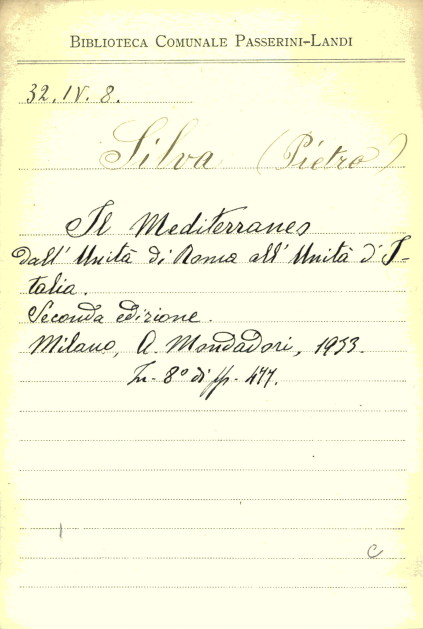 BIBLIOTECA COMUNALE PASSERINI-LANDI
32. IV. 8.
Silva (Pietro)
Il Mediterraneo
dall' Unità di Roma all' Unità d' I-
talia.
Seconda edizione.
Milano, A. Mondadori, 1933.
In-8° di pp. 477.
C